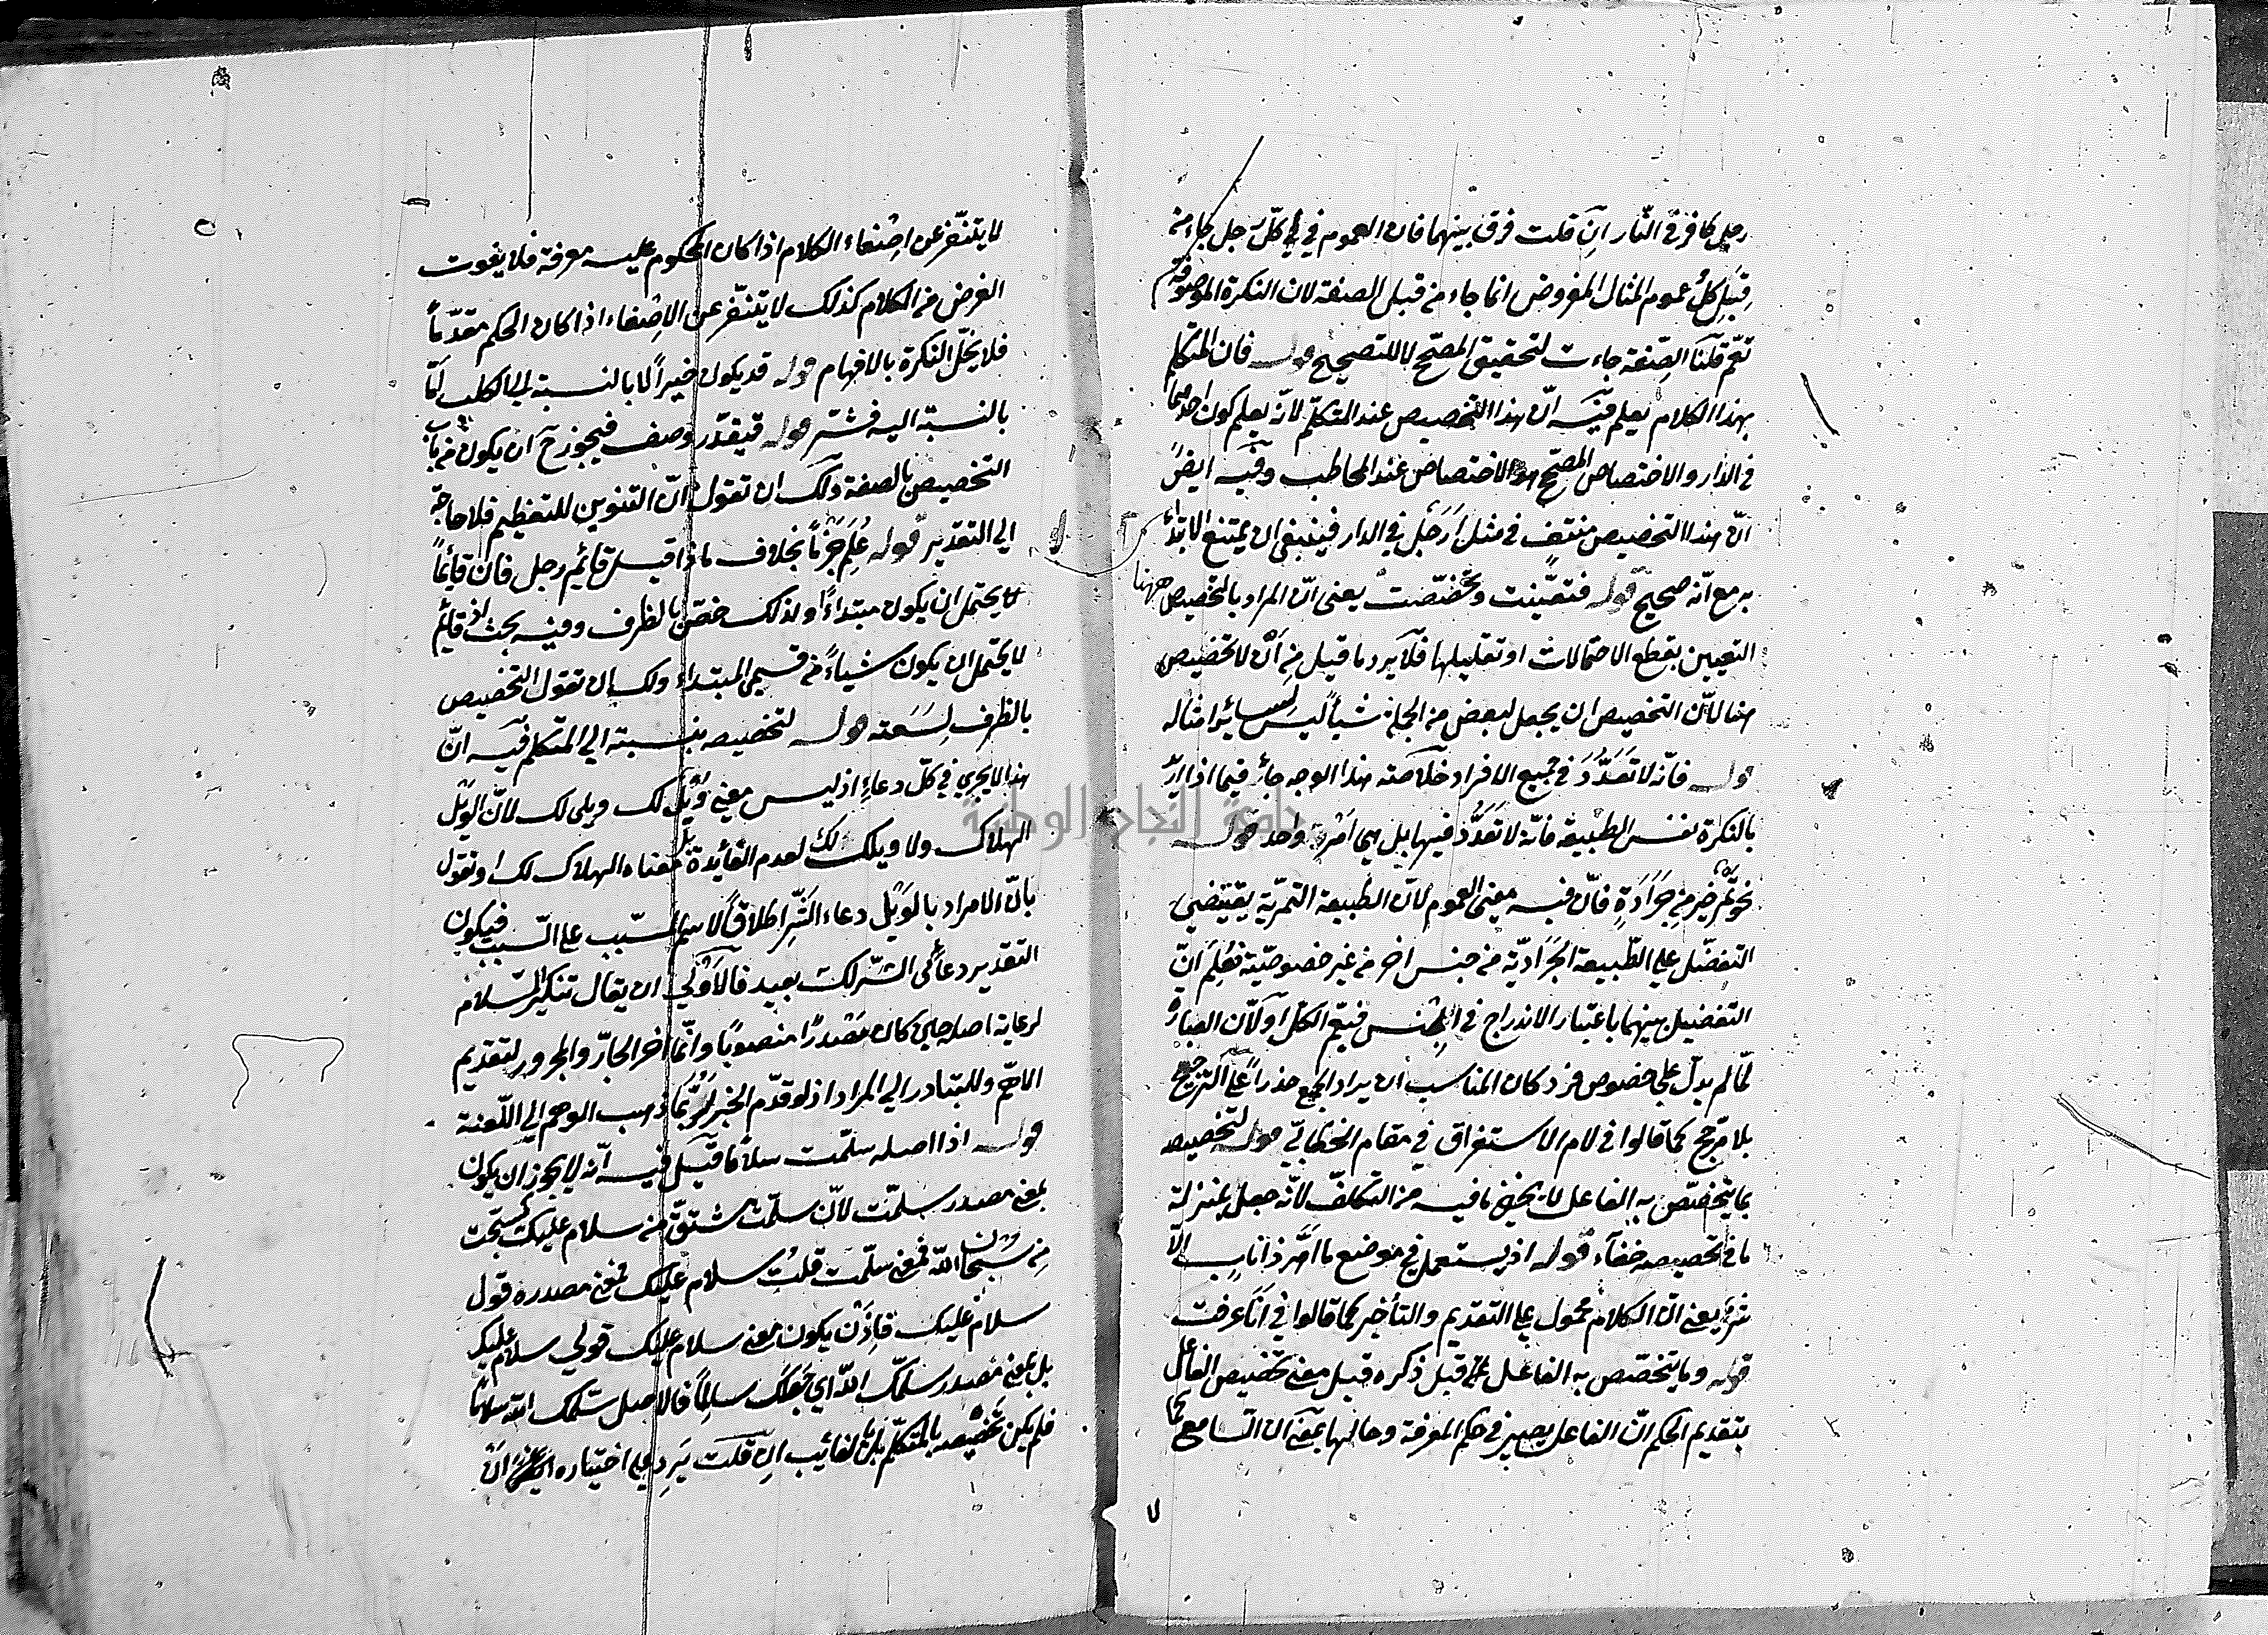 رجل كافر في النّار ان قلت فرق بينهما فان العموم في كلّ رجل جاء من
قِبَلِ كلُّ عموم المثال المفروض انما جاء من قبل الصفة لان النكرة الموصوفة
تعمّ قلنا الصّفة جاءت لتحقيق المصحّح لا للتصحيح قوله فان المتكلم
بهذا الكلام يعلم فيه انّ هذا التخصيص عند المتكلّم لانّه يعلم كون احدهما
في الدار والاختصاص المصحّح هو الاختصاص عند المخاطب وفيه ايضً
انّ هذا التخصيص منتفٍ في مثل أَرَجُلٌ في الدار فينبغي ان يمتنع الابتداء
به مع انّه صحيح قوله فتعيّنت وتخصّصت يعني انّ المراد بالتخصيص ههنا
التعيين بقطع الاحتمالات او تقليلها فلا يرد ما قيل مِن أنْ لا تخصيص
هنا لانّ التخصيص ان يجعل لبعض من الجملة شيأً ليس لسائر امثاله
قوله فانّه لا تَعَدُّدَ في جميع الافراد خلاصته هذا الوجه جار فيما اذا اريد
بالنكرة نفس الطبيعة فانّه لا تعدُّد فيها بل هي امر وحد قوله
نحو تمرةٌ خير من جَرَادَةٍ فانّ فيه معنى العموم لانّ الطبيعة التمريّة يقتضي
التفضّل على الطّبيعة الجَرَاديّة من جنس اخر من غير خصوصيّة فعُلِمَ انّ
التفضيل بينهما باعتبار الاندراج في الجنس فيعّم الكلّ اولانّ العبارة
لمّا لم يدلّ على خصوص فرد كان المناسب ان يراد الجميع حذراً عن الترجيح
بلا مرّجح كما قالوا في لام الاستغراق في مقام الخطابيّ قوله لتخصيصه
بما يتخصّص به الفاعل لا يخفى ما فيه من التكلّف لانّه جعل بمنزلة
ما في تخصيصه خفآء قوله اذ يستعمل في موضع ما اهرّ ذا ناب الّا
شرّ يعني انّ الكلام محمول على التقديم والتأخير كما قالوا في انا عرفت
قوله وما يتخصّص به الفاعل قبل ذكره قيل معنى تخصيص الفاعل
بتقديم الحكم انّ الفاعل يصير في حكم المعرفة وحالها بمعنى ان السّامع كما
لا يتنفّر عن اِصْغاء الكلام اذا كان المحكوم عليه معرفة فلا يفوت
الغرض من الكلام كذلك لا يتنفّر عن الاِصْغاء اذا كان الحكم مقدّماً
فلا يخلّ النكرة بالافهام قوله قد يكون خيراً لا بالنسبة الى الكلب امّا
بالنسبة اليه فشرّ قوله فيقدّر وصف فيجوز ح ان يكون من باب
التخصيص بالصفة ولك ان تقول انّ التنوين للتعظيم فلا حاجة
الي التقدير قوله عُلِمَ جَزْماً بخلاف ما ذا قيل قائم رجل فان قائماً
يحتمل ان يكون مبتداءً ولذلك خصّ بالظرف وفيه بحث اذ قائم
لا يحتمل ان يكون شياءً من قسمي المبتداء ولك ان تقول التخصيص
بالظرف لسَعَته قوله لتخصيصه بنسبته الي المتكلم فيه انّ
هذا لا يجري في كلّ دعاءٍ اذ ليس معنى وَيْلٌ لك ويلى لك لانّ الوَيْل
الهلاك ولا ويلك لك لعدم الفائدة بل معناه الهلاك لك او نقول
بانّ الامراد بالوَيْل دعاء الشّرِ اطلاقً لاسم المسبّب على السّبب فيكون
التقدير دعائى الشّر لك بعيد فالاَوْلَي ان يقال تنكير السّلام
لرعاية اصله حين كان مَصْدرًا منصوبًا وانّما اخر الجارّ والمجرور لتقديم
الاهمّ وللتبادر الي المراد اذ لو قدّم الخبر لرُبَّما ذهب الوهم الي اللّعنة
قوله اذا اصله سلّمت سلامًا قيل فيه انّه لا يجوز ان يكون
بمعنى مصدر سلّمت لانّ سلّمت مشتقّ من سلام عليك كسبّحت
مِن سُبْحان اللّه فمعنى سلّمت قلتُ سلام عليك فمعنى مصدره قول
سلام عليك فاِذَن يكون معنى سلام عليك قولي سلام عليك
بل بمعنى مصدر سلّمك اللّه اي جَعَلك سالِماً فالاصل سلّمك اللّه سلامًا
فلم يكن تخصّيصه بالمتكلّم بل بالغائب ان قلت يَرِد على اختياره انّ
٧
جامعة النجاح الوطنية